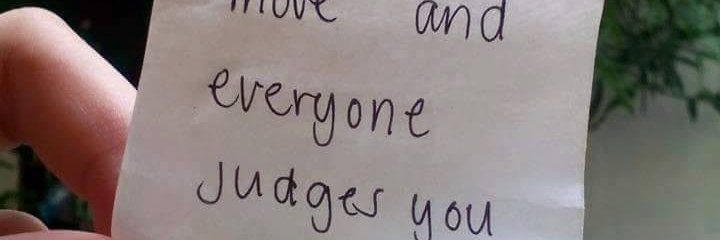 move and
everyone
judges you